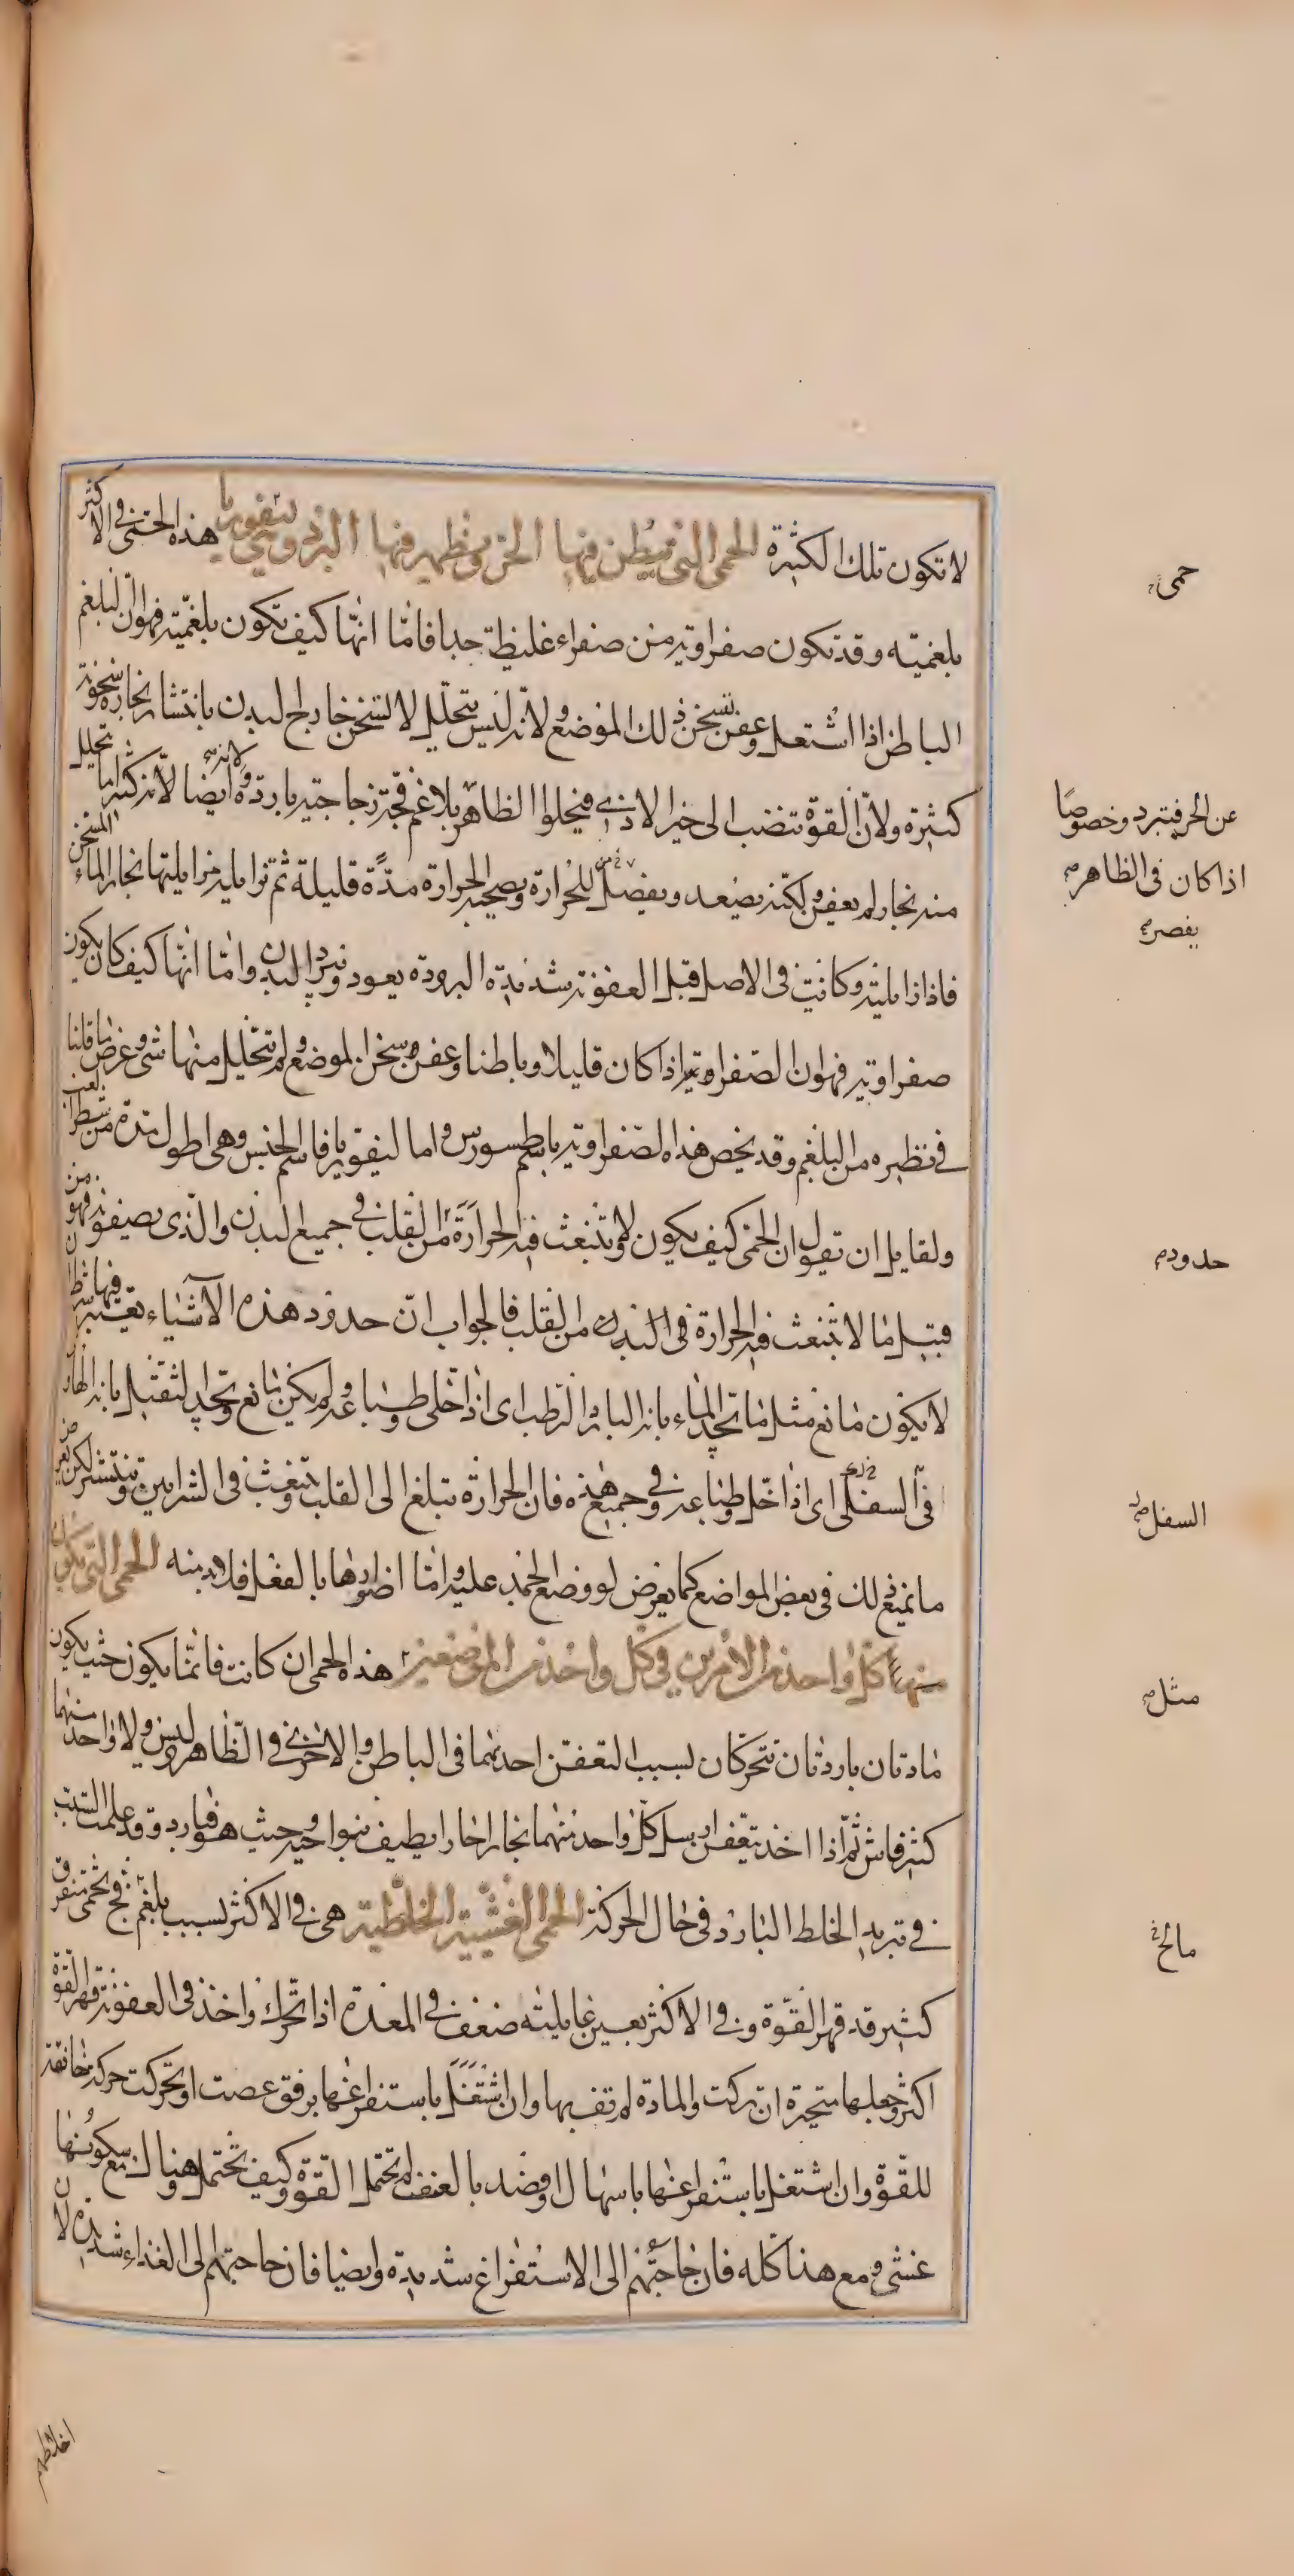 لا تكون تلك الكثيرة الحمى التي يبطن فيها الحر ويظهر فيها البرد وهي ليفوريا هذه الحمى في الاكثر
بلغميته وقد تكون صفراويه من صفراء غليظة جدا فاما انها كيف تكون بلغميته فهو ان البلغم
الباطن اذا اشتعل وعفن تسخن ذلك الموضع ولانه ليس يتحلل لا تسخن خارج البدن بانتشار بخاره سخونة
كثيرة ولان القوة تنضب الى حيز الاذى فيخلوا الظاهر بلاغم فجة زجاجيه باردة وايضا لانه كثيرا ما تحلل
منه بخار لم يعفن ولكنه يصعد ويفصل للحرارة ويصحبه الحرارة مدة قليلة ثم تزايله مزايلتها بخار الماء المسخن
فاذا زايلته وكانت في الاصل قبل العفونه شديدة البرودة يعود ويبرد البدن واما انها كيف كان يكون
صفراويه فهو ان الصفراويه اذا كان قليلا وباطنا وعفن سخن الموضع ولم يتحلل منها شي وعرض ما قلنا
في نظيره من البلغم وقد يخص هذا الصفراويه باسم طسورس واما ليفوريا فاسم الجنس وهي اطول مدة من شطر الغب
ولقايل ان تقول ان الحمى كيف يكون ولا تنبعث فيه الحرارة من القلب في جميع البدن والذي يصفونه فهو من
قبيل ما لا تنبعث فيه الحرارة في البدن من القلب فالجواب ان حدود هذه الاشياء يعتبر فيها شرط ان
لا يكون مانع مثل ما نحد الماء بانه البارد الرطب اي اذا خلى وطباعه ولم يكن مانع ونحد الثقيل بانه الهاوي
في السفلى اي اذا خلى وطباعه وفي جميع هذه فان الحرارة تبلغ الى القلب وتنبعث في الشرايين وتنتشر لكن يعرض
ما يمنع ذلك في بعض المواضع كما يعرض لو وضع الجمد عليه واما اضرارها بالفعل فلا بد منه الحمى التي تكون
منها كل واحد من الامرين في كل واحد من الموضعين هذه الحمى ان كانت فانما يكون حيث يكون
مادتان باردتان تتحركان بسبب التعفن احدهما في الباطن والاخرى في الظاهر وليس ولا واحد منهما
كثير فاش ثم اذا اخذ يتعفن ارسل كل واحد منهما بخارا حارا يطيف بنواحيه وحيث هو فبارد وقد علمت السبب
في تبريد الخلط البارد في حال الحركة الحمى الغشيية الخلطية هي في الاكثر بسبب بلغم فج تخمي متفرق
كثير قد قهر القوة وفي الاكثر يعين غايليته ضعف في المعدة اذا تحرك واخذ في العفونة قهر القوة
اكثر وجعلها متحيرة ان تركت والمادة لم تف بها وان اشتغل باستفراغها برفق عصت او تحركت حركة خانقة
للقوة وان اشتغل باستفراغها باسهال او فصد بالعنف لم تحتمل القوة وكيف تحتمل وهنا لك مع سكونها
غشي ومع هذا كله فان حاجتهم الى الاستفراغ شديدة وايضا فان حاجتهم الى الغذاء شديدة لان
حمى
عن الحر فيتبرد وخصوصا
اذا كان في الظاهر
يفصر
حدود
السفل
مثل
مالح
اخلاطهم